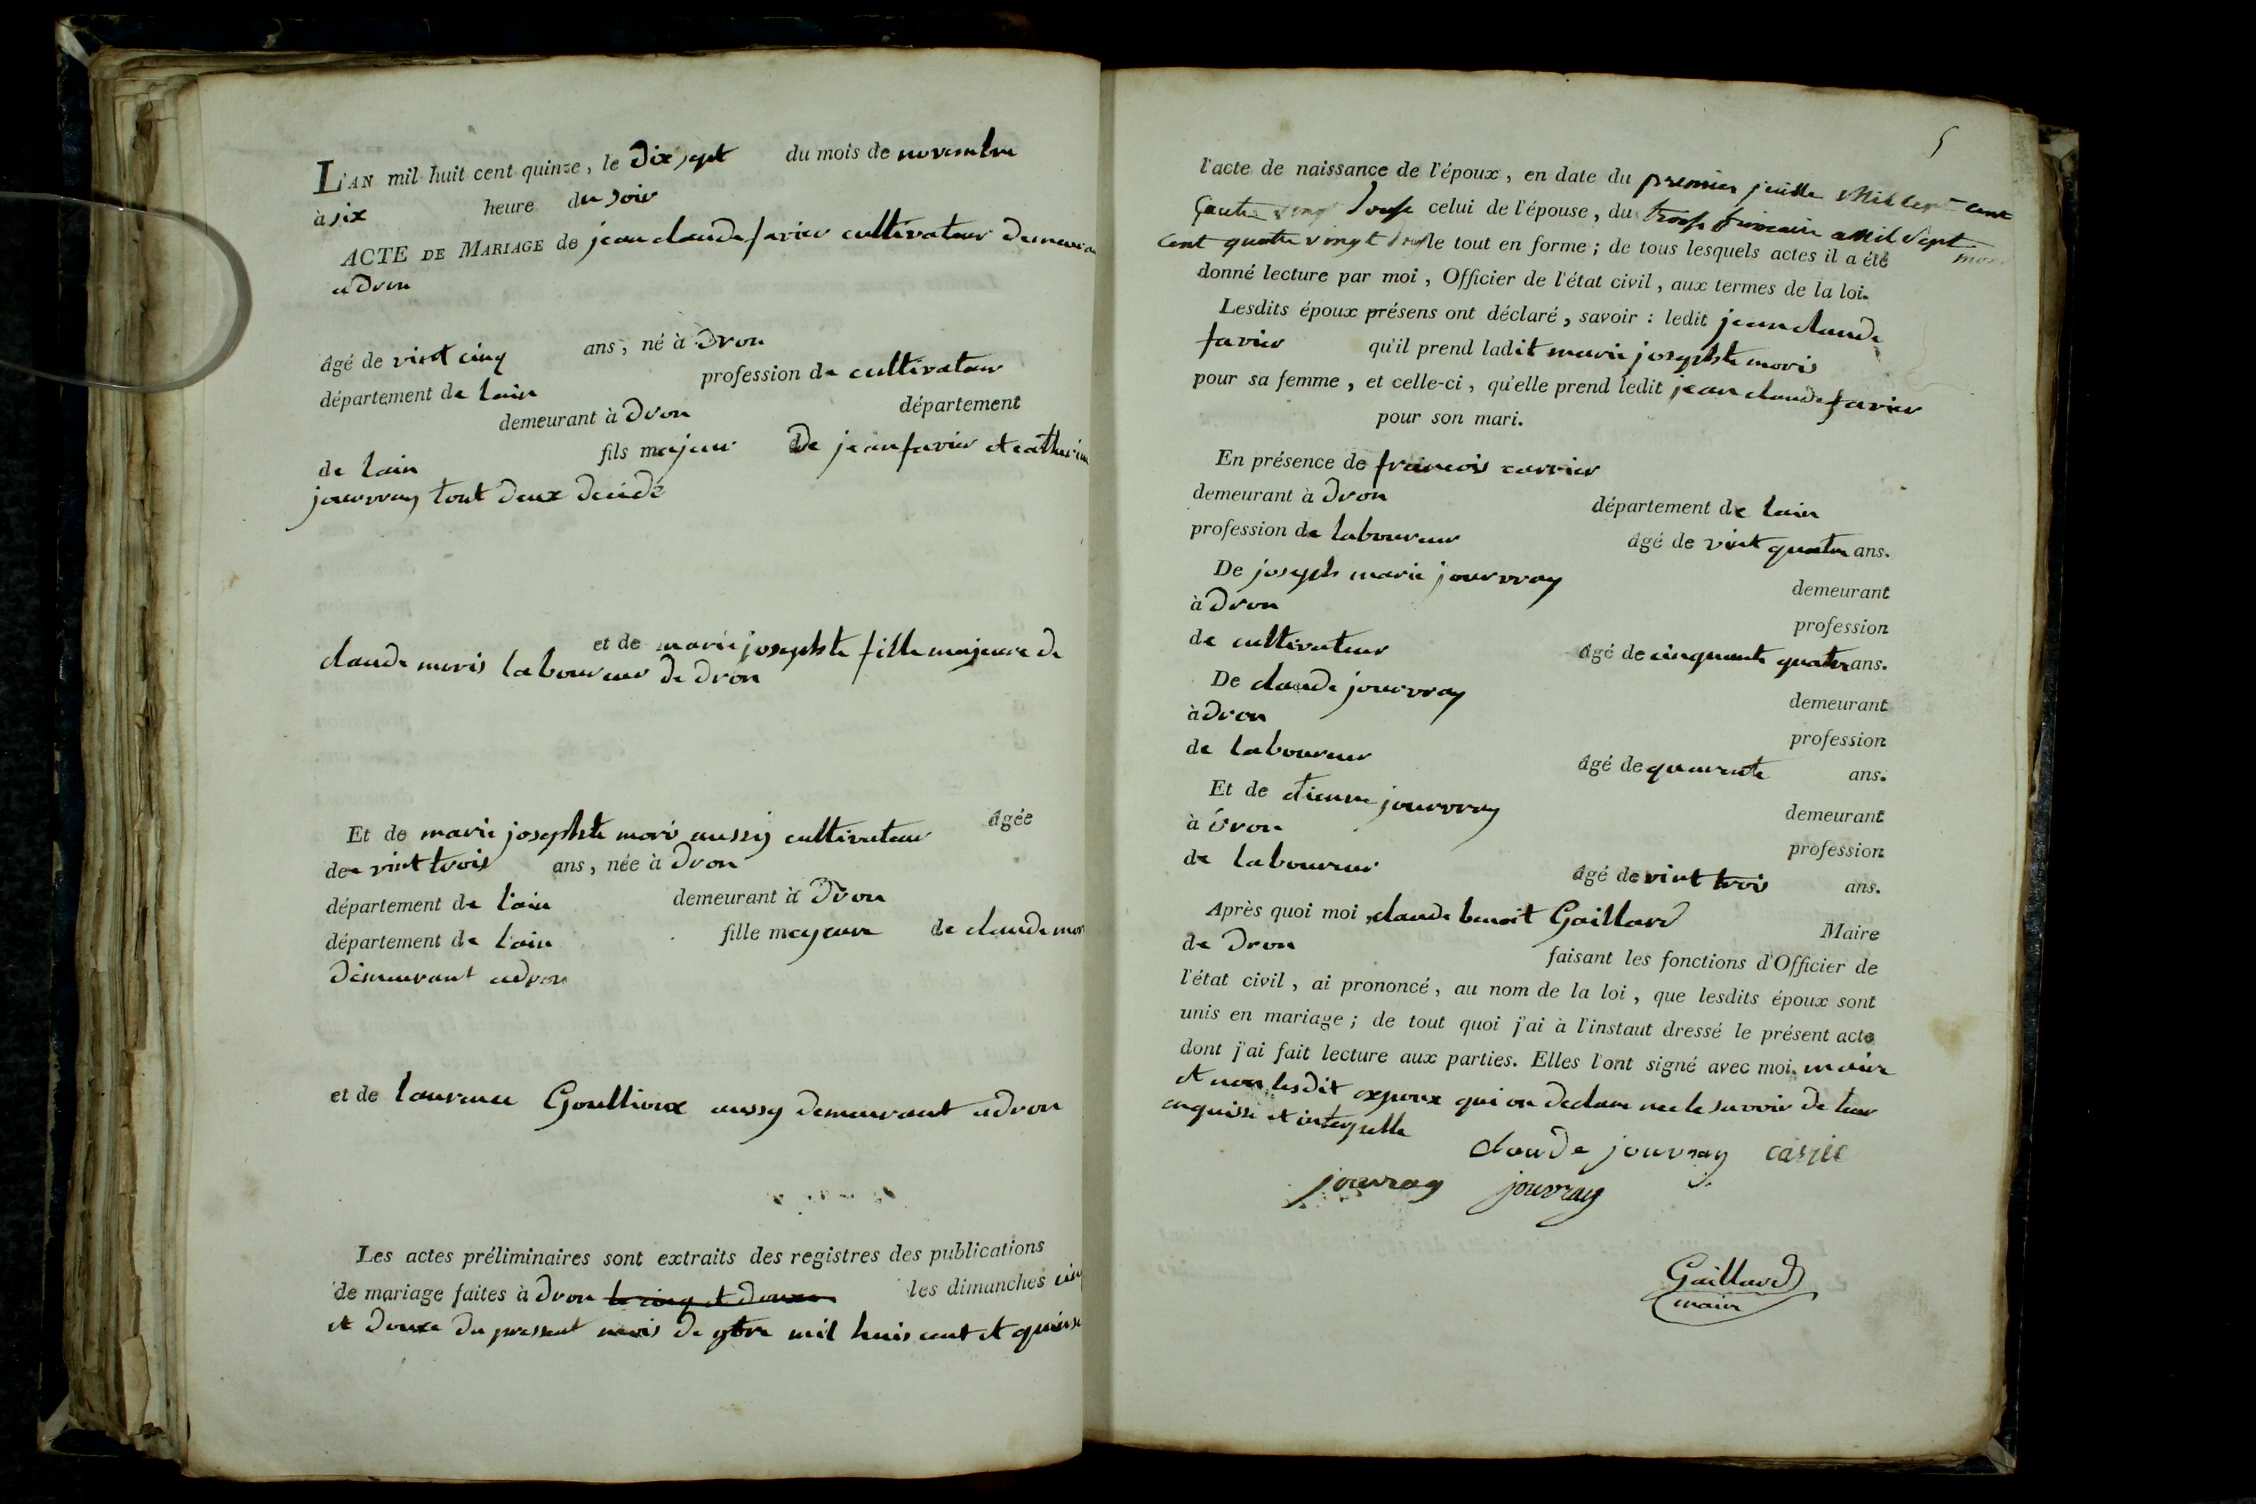 L'AN mil huit cent quinze, le dix sept du mois de novembre
à six heure du soir
ACTE DE MARIAGE de jean claude favier cultivateur demeuran
a dron
âgé de vint cinq ans, né à dron
département de lain profession de cultivateur
demeurant à dron département
de lain fils majeur de jean favier et catherin
jourvray tout deux decidé
et de marie josephte fille majeure de
claude moris laboureur de dron
Et de marie josephte moris aussy cultivateur âgée
de vint trois ans, née à dron
département de lain demeurant à dron
département de lain fille mayeure de claude mor
demeurant adron
et de laurence Goullioux aussy demeurant adron
Les actes préliminaires sont extraits des registres des publications
de mariage faites à dron le cinq et douxe les dimanches cinq
et douxe du present mois de gbre mil huis cent et quinse
5
l'acte de naissance de l'époux, en date du premier Mil sept cent
vingt celui de l'épouse, du Mil Sept
cent quatre vingt le tout en forme; de tous lesquels actes il a été
donné lecture par moi, Officier de l'état civil, aux termes de la loi.
Lesdits époux présens ont déclaré, savoir : ledit jean claude
favier qu'il prend ladit marie josephte moris
pour sa femme, et celle-ci, qu'elle prend ledit jean claude favier
pour son mari.
En présence de francois carrier
demeurant à dron département de lain
profession de laboureur âgé de vint quatre ans.
De joseph marie jourvray demeurant
à dron profession
de cultivateur âgé de cinquante quatre ans.
De claude jourvray demeurant
à dron profession
de laboureur âgé de quarente ans.
Et de etienne jourvray demeurant
à dron profession
de laboureur âgé de vint trois ans.
Après quoi moi, claude benoit Gaillard Maire
de dron faisant les fonctions d'Officier de
l'état civil, ai prononcé, au nom de la loi, que lesdits époux sont
unis en mariage; de tout quoi j'ai à l'instaut dressé le présent acte
dont j'ai fait lecture aux parties. Elles l'ont signé avec moi. maire
et non lesdit expoux qui on declare ne le savoir de leur
enquisse et interpelle
claude jouvray
jouvray jouvray
Gaillard
maire